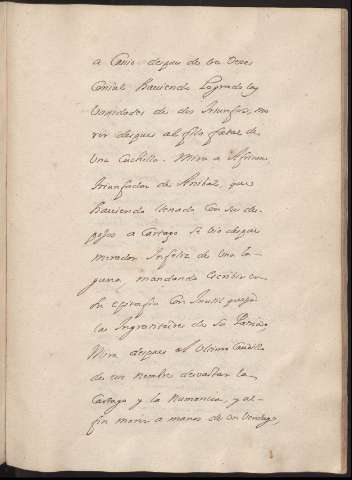 a Cauio despues de tres Vezes
Consul Haviendo Logrado las
Vanidades de dos triunfos, mo
rir despues al filo fatal de
Una Cuchilla. Mira a African,
triunfador de Anibal, que
Haviendo llenado con sus des
pojos a Cartago se vio despues
morador Infeliz de Una la-
guna, mandando escribir en
su epitafio con Inutil quexa
las Ingratitudes de su Patria,
Mira despues al Ultimo Caudillo
de su nombre devastar la
Cartago y la Numancia, y al
fin morir a manos de un Verdugo,